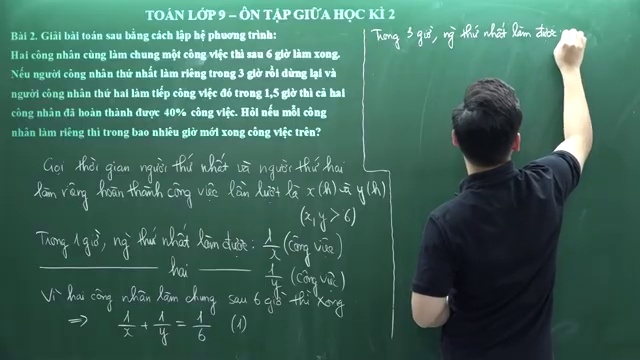 TOÁN LỚP 9 – ÔN TẬP GIỮA HỌC KÌ 2
Bài 2. Giải bài toán sau bằng cách lập hệ phương trình:
Hai công nhân cùng làm chung một công việc thì sau 6 giờ làm xong.
Nếu người công nhân thứ nhất làm riêng trong 3 giờ rồi dừng lại và
người công nhân thứ hai làm tiếp công việc đó trong 1,5 giờ thì cả hai
công nhân đã hoàn thành được 40% công việc. Hỏi nếu mỗi công
nhân làm riêng thì trong bao nhiêu giờ mới xong công việc trên?
Gọi thời gian người thứ nhất và người thứ hai
làm riêng hoàn thành công việc lần lượt là x(h) và y(h)
(x, y > 6)
Trong 1 giờ, ng thứ nhất làm được: 1/x (công việc)
hai 1/y (công việc)
Vì hai công nhân làm chung sau 6 giờ thì xong
⇒ 1/x + 1/y = 1/6 (1)
Trong 3 giờ, ng thứ nhất làm được